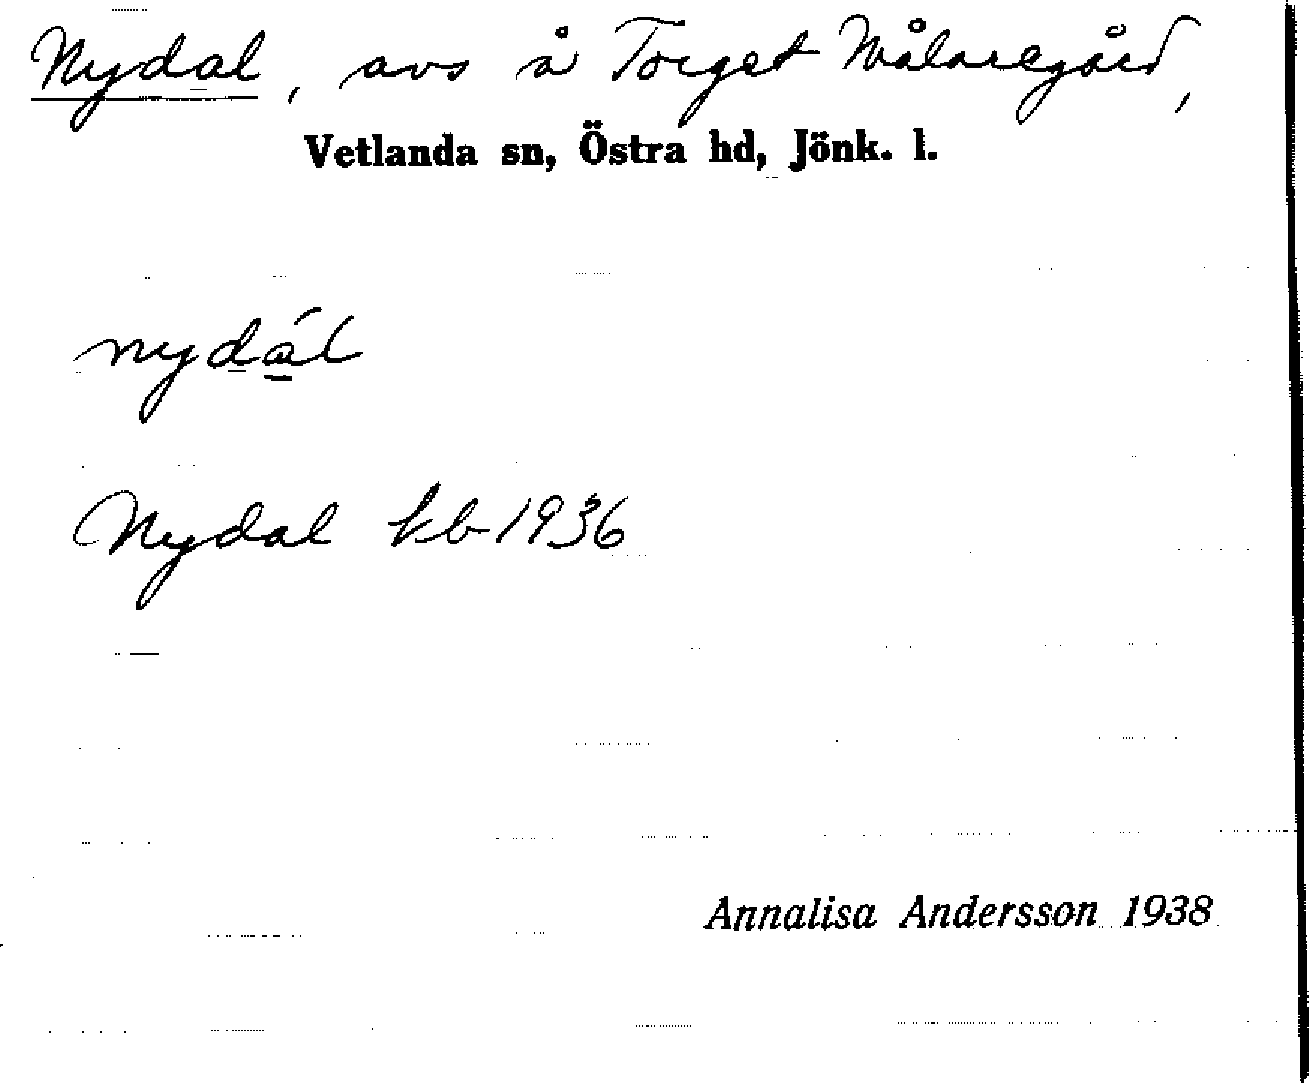 Nydal, avs å Torget Målaregård,
Vetlanda sn, Östra hd, Jönk. l.
nydál
Nydal kb 1936
Annalisa Andersson 1938